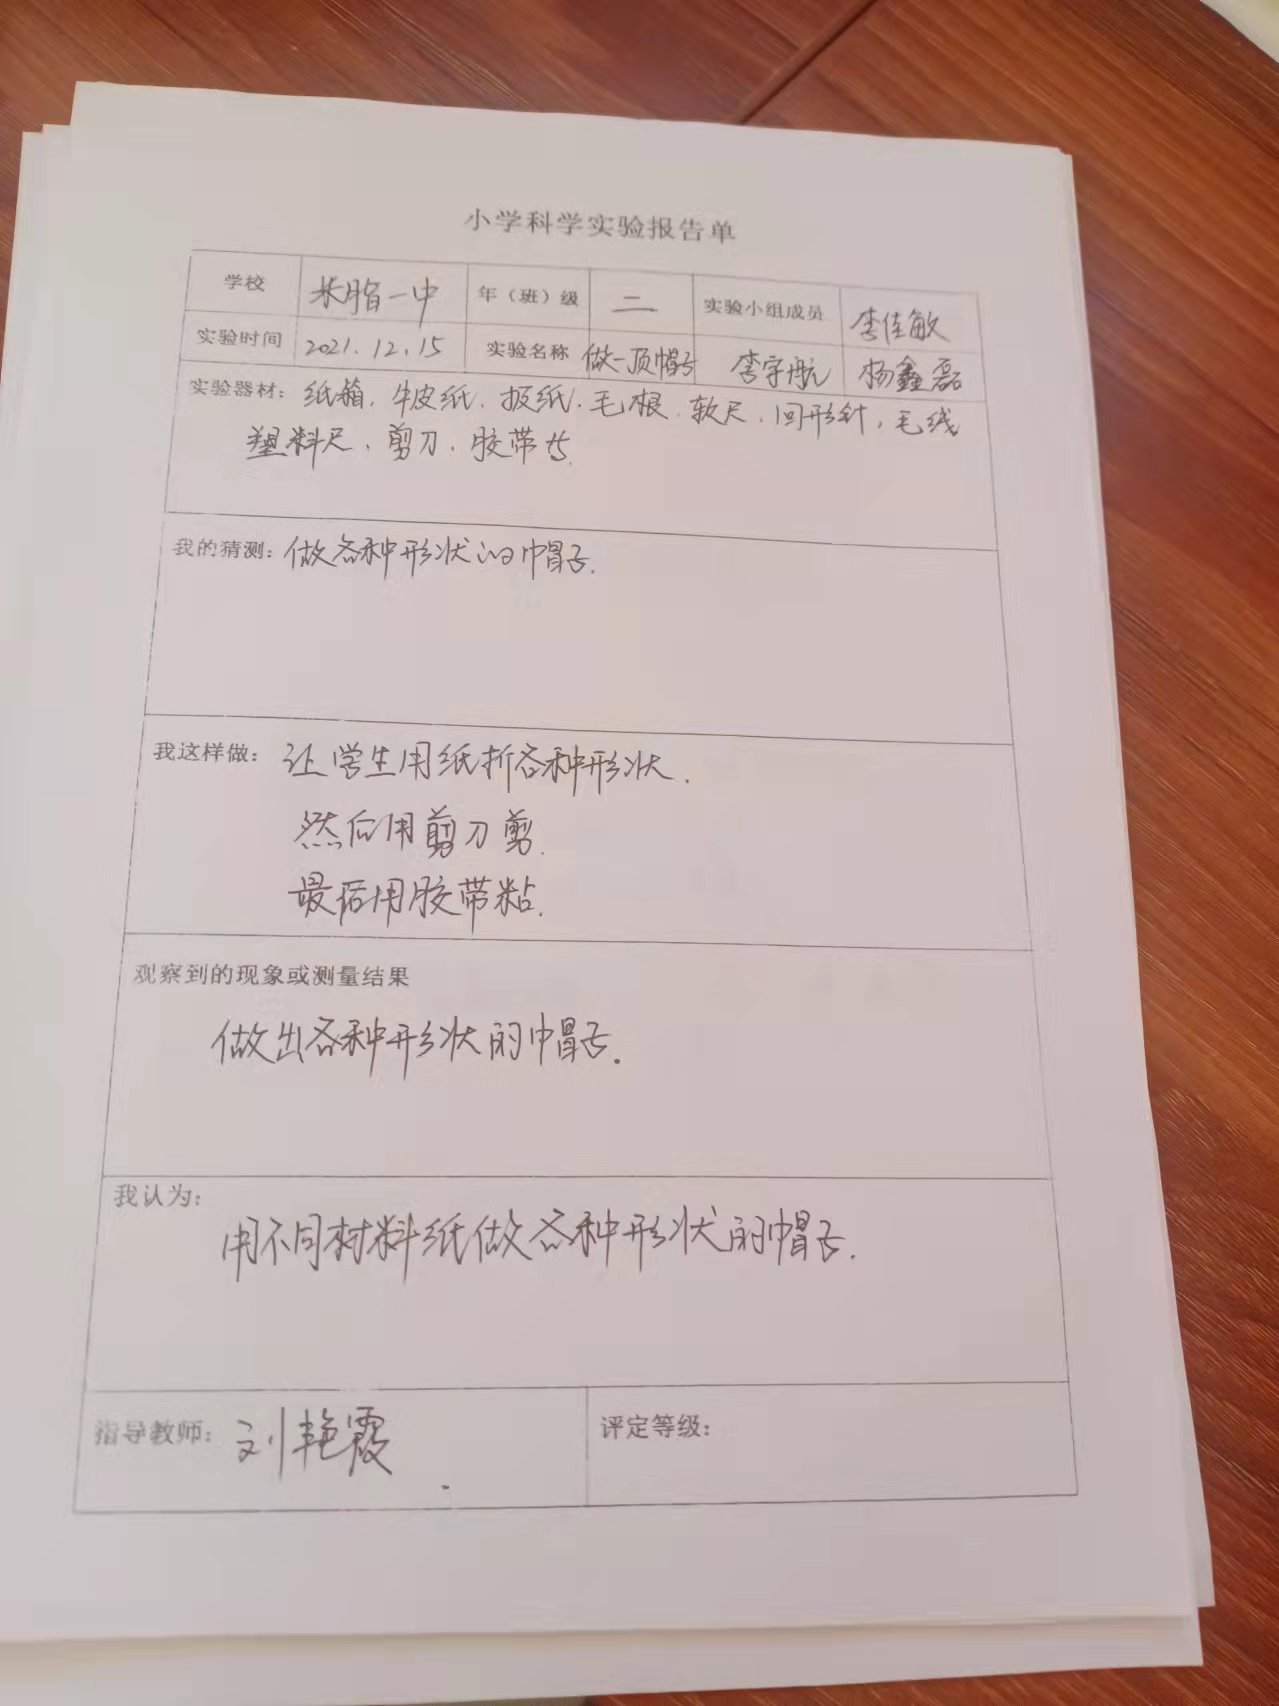 小学科学实验报告单
学校 米脂一中 年（班）级 二 实验小组成员 李佳敏
实验时间 2021.12.15 实验名称 做一顶帽子 李宇航 杨鑫磊
实验器材：纸箱.牛皮纸.报纸.毛根.软尺.回形针,毛线
塑料尺、剪刀.胶带
我的猜测：做各种形状的帽子.
我这样做：让学生用纸折各种形状.
然后用剪刀剪.
最后用胶带粘.
观察到的现象或测量结果
做出各种形状的帽子.
我认为:
用不同材料纸做各种形状的帽子.
指导教师：刘艳霞 评定等级：